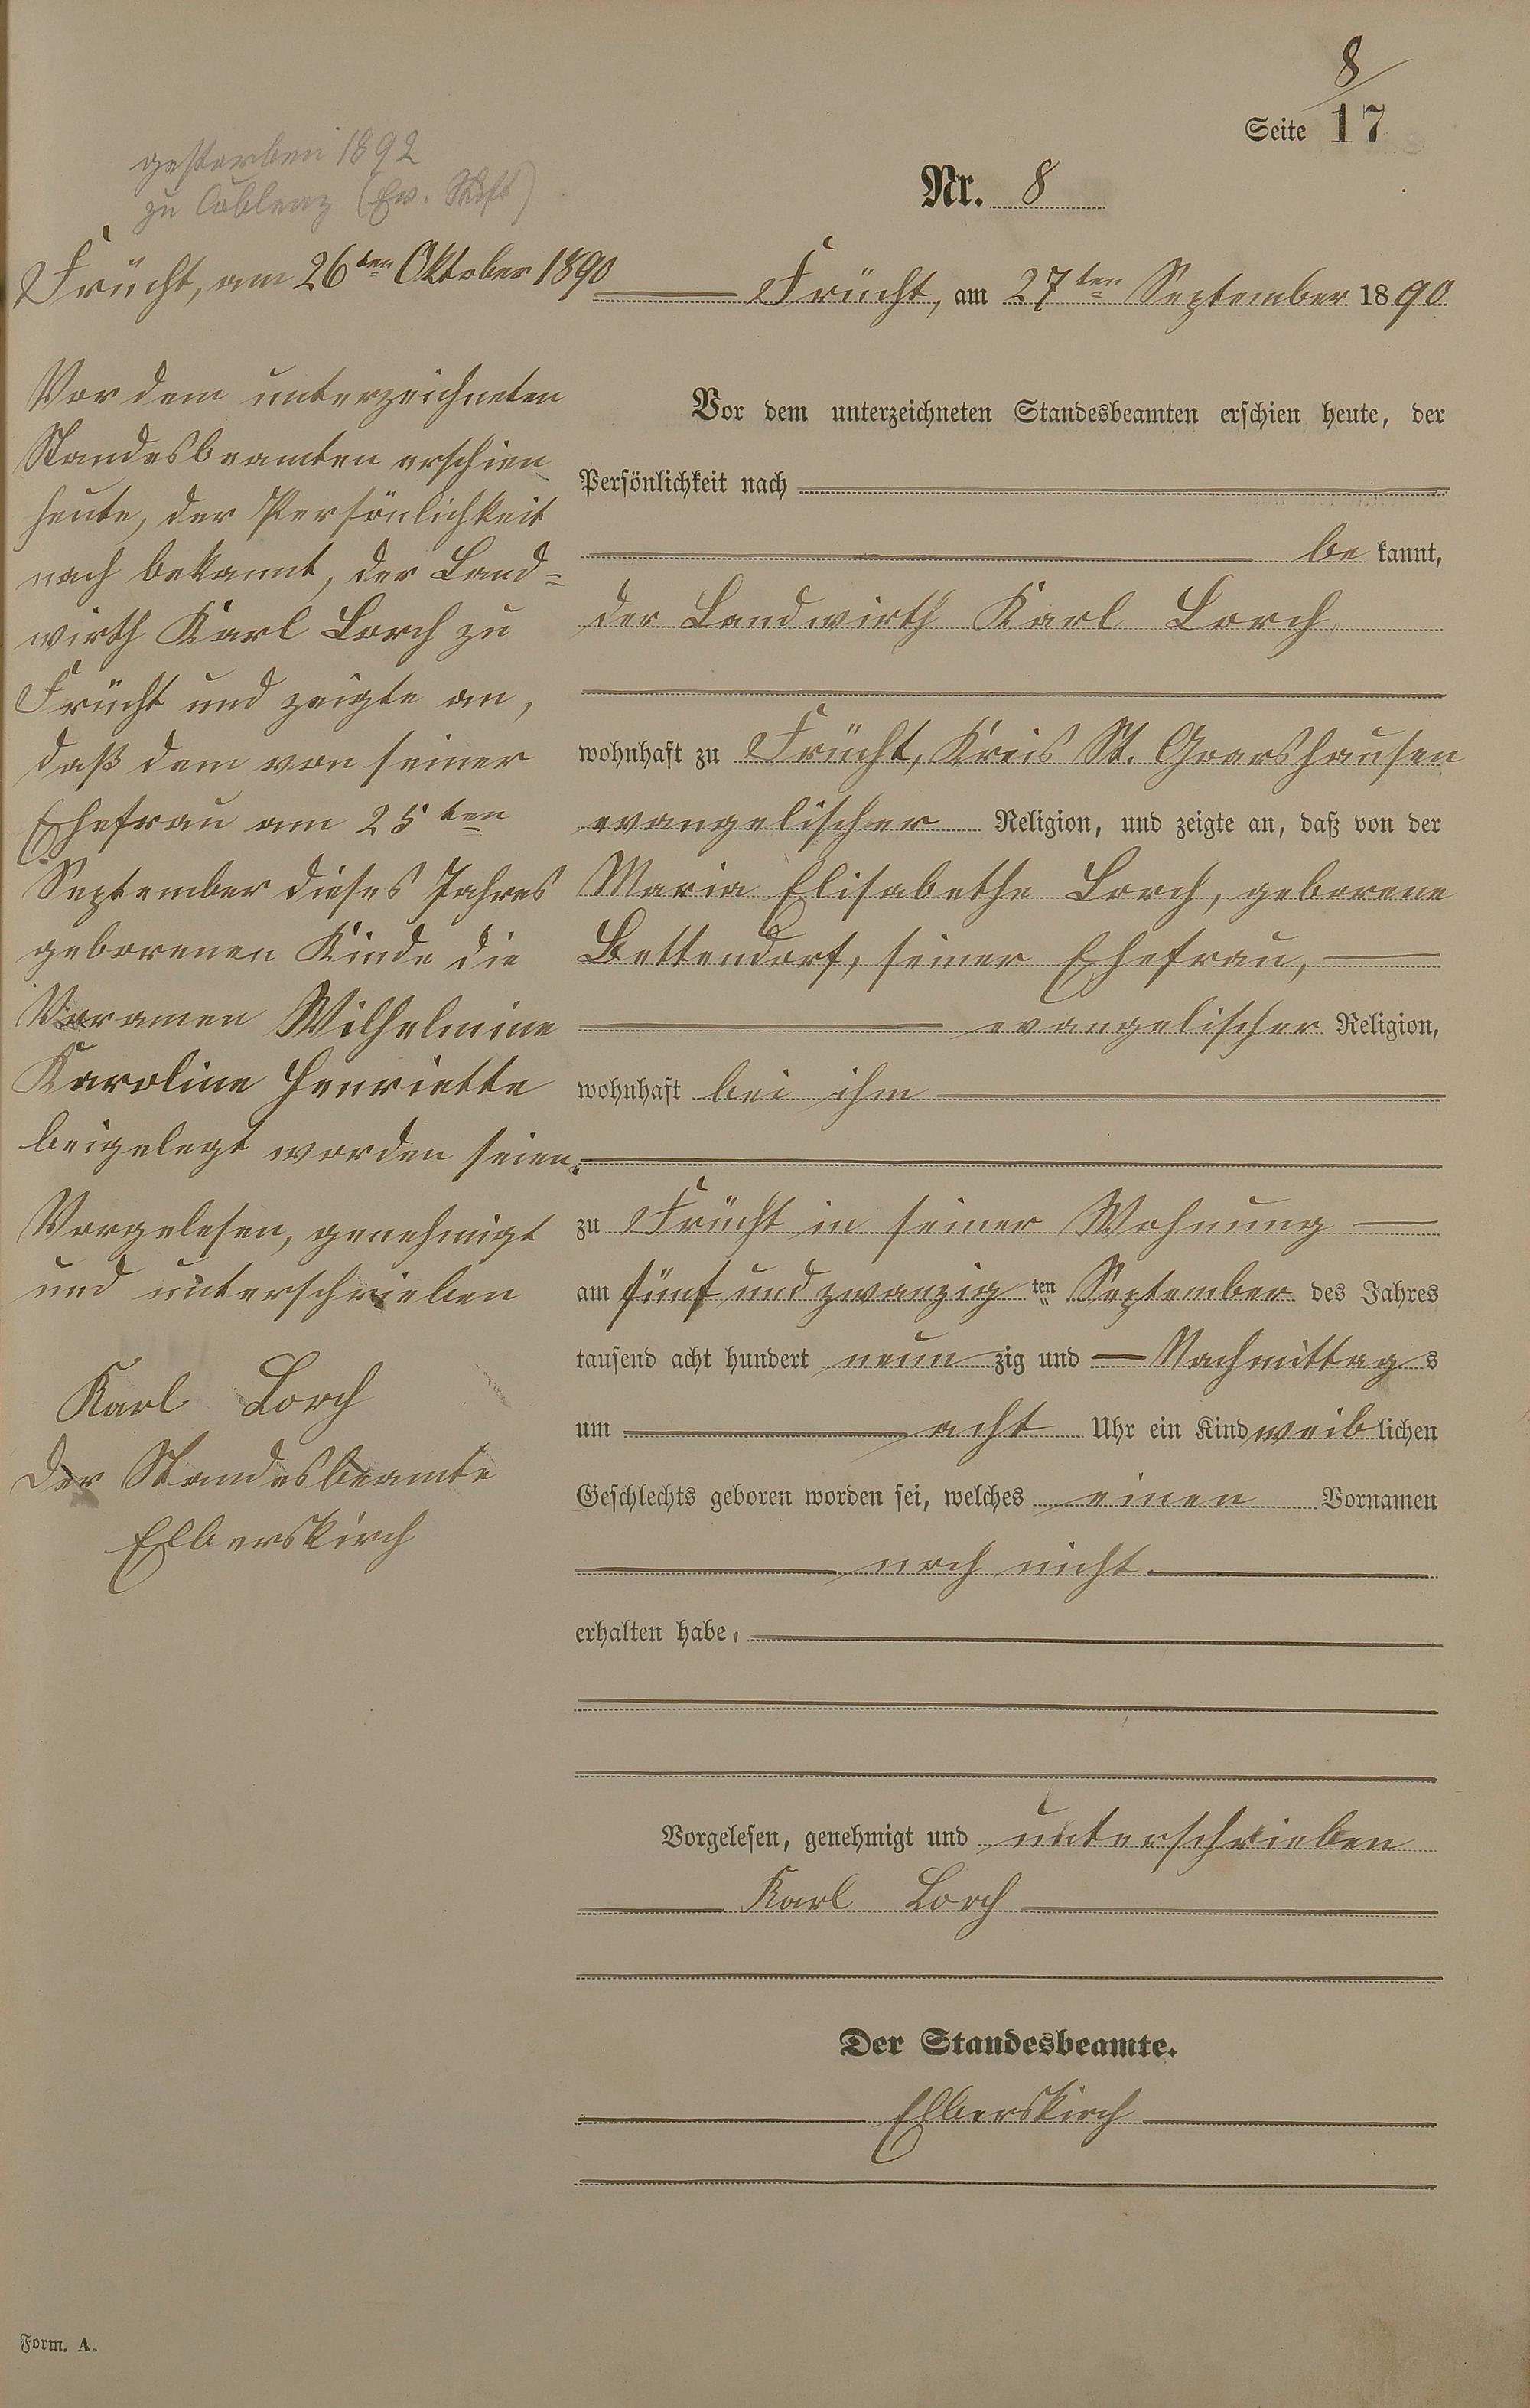 8
Seite 17
gestorben 1892
zu Coblenz (Ev. Stift)
Nr. 8
Frücht, am 26ten Oktober 1890
Vor dem unterzeichneten
Standesbeamten erschien
heute, der Persönlichkeit
nach bekannt, der Land=
wirth Karl Lorch zu
Frücht und zeigte an,
daß dem von seiner
Ehefrau am 25ten
September dieses Jahres
geborenen Kinde die
Voramen Wilhelmine
Karoline Henriette
beigelegt worden seien.
Vorgelesen, genehmigt
und unterschrieben
Karl Lorch
Der Standesbeamte
Elberskirch
Frücht, am 27ten September 1890
Vor dem unterzeichneten Standesbeamten erschien heute, der
Persönlichkeit nach
be kannt,
der Landwirth Karl Lorch
wohnhaft zu Frücht, Kreis St. Goarshausen
evangelischer Religion, und zeigte an, daß von der
Maria Elisabethe Lorch, geborene
Bettendorf, seiner Ehefrau,
evangelischer Religion,
wohnhaft bei ihm
zu Frücht in seiner Wohnung
am fünf und zwanzig ten September des Jahres
tausend acht hundert neun zig und — Nachmittag s
um acht Uhr ein Kind weib lichen
Geschlechts geboren worden sei, welches einen Vornamen
noch nicht.
erhalten habe.
Vorgelesen, genehmigt und unterschrieben
Karl Lorch
Der Standesbeamte.
Elberskirch
Form. A.